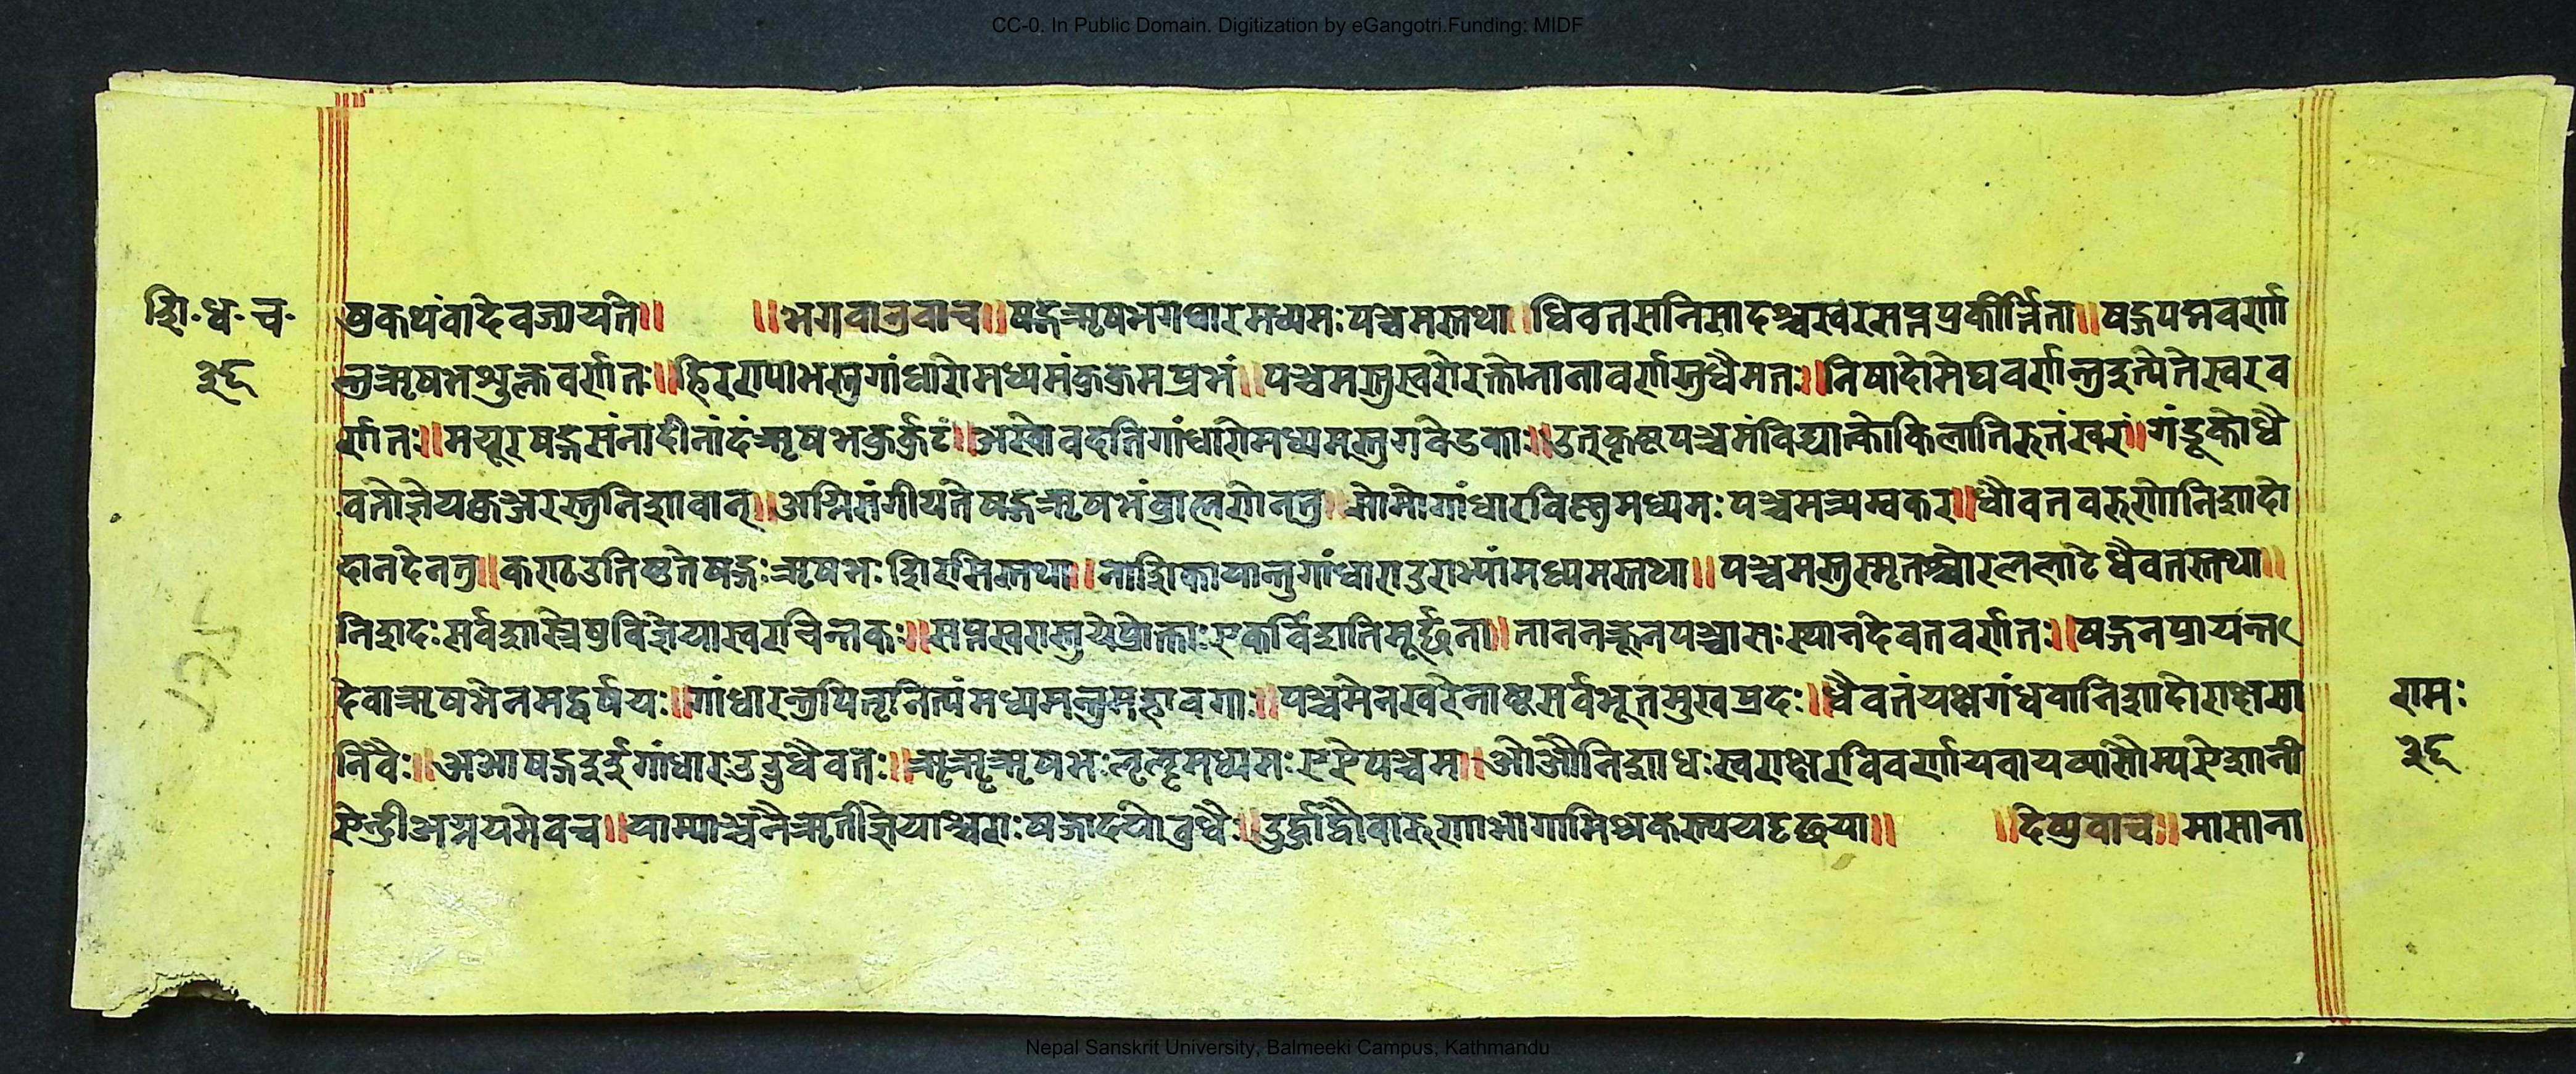 CC-0. In Public Domain. Digitization by eGangotri.Funding: MIDF
शि॰ध॰च॰
३६
षुकथंवादेवज्यायते॥ ॥भगवानुवाच॥षड्गऋषभगधारमध्यमःपञ्चमस्तथा॥धिवतसनिसादश्चस्वरसप्तप्रकीर्त्तिता॥षड्गपद्मवर्णा
न्तुऋषभशुक्लवर्णतः॥हिरण्याभस्तुगांधारोमध्यमंकुकुमप्रभं॥पञ्चमस्तुस्वरोरक्तोनानावर्णास्तुधैमतः॥निषादोमेघवर्णान्तुइत्येतेस्वरव
र्णतः॥मयूरषड्गसंनादीनांदंऋषभकुर्कुटं॥अस्वोवदतिगांधारोमध्यमस्तुगवेडकाः॥उत्कृष्टपञ्चमंविद्यात्कोकिलातिरुतंस्वरं॥गंडूकोधै
वतोज्ञेयकुञ्जरस्तुनिशावान्॥अग्निसंगीयतेषड्गऋषभंब्राह्मणेनतु॥सोमोगांधारविष्णुमध्यमःपञ्चमत्र्यम्बकर॥धौवतवरुणोनिशादो
दानदेनतु॥कण्ठउतिष्ठतेषड्गःऋषभःशिरसिस्तथा॥नाशिकायान्तुगांधाराउराभ्यांमध्यमस्तथा॥पञ्चमस्तुस्मृतश्चोरललाटेधैवतस्तथा॥
निशादःसर्वशास्त्रेषुविज्ञेयास्वरचिन्तकः॥सप्तस्वरास्तुयेप्रोक्ताःएकविंशतिमूर्छना॥ताननक्रूनपञ्चासःस्थानदेवतवर्णतः॥षड्गनप्रायन्त
देवाऋषभेनमद्वर्षयः॥गांधारन्तुपितृनित्यंमध्यमन्तुमहावगाः॥पञ्चमेनस्वरेनाष्टसर्वभूतसुखप्रदः॥धैवतंयक्षगंधवानिशादोराक्षसा
निवैः॥अआषड्गइईगांधारउउधैवतः॥ऋॠऋषभःऌॡमध्यमःएऐपञ्चम॥ओऔनिशाधःस्वराक्षरविवर्णायवायव्यांसौम्यऐशानी
ऐन्द्रीअग्नयमेवच॥याम्याञ्चनैऋतीज्ञेयाश्चराःषड्गादयोवुधैः॥दुर्द्धाद्वौवारुणाभागामिश्चकस्ययदृछया॥ ॥देव्युवाच॥मासाना
रामः
३६
Nepal Sanskrit University, Balmeeki Campus, Kathmandu